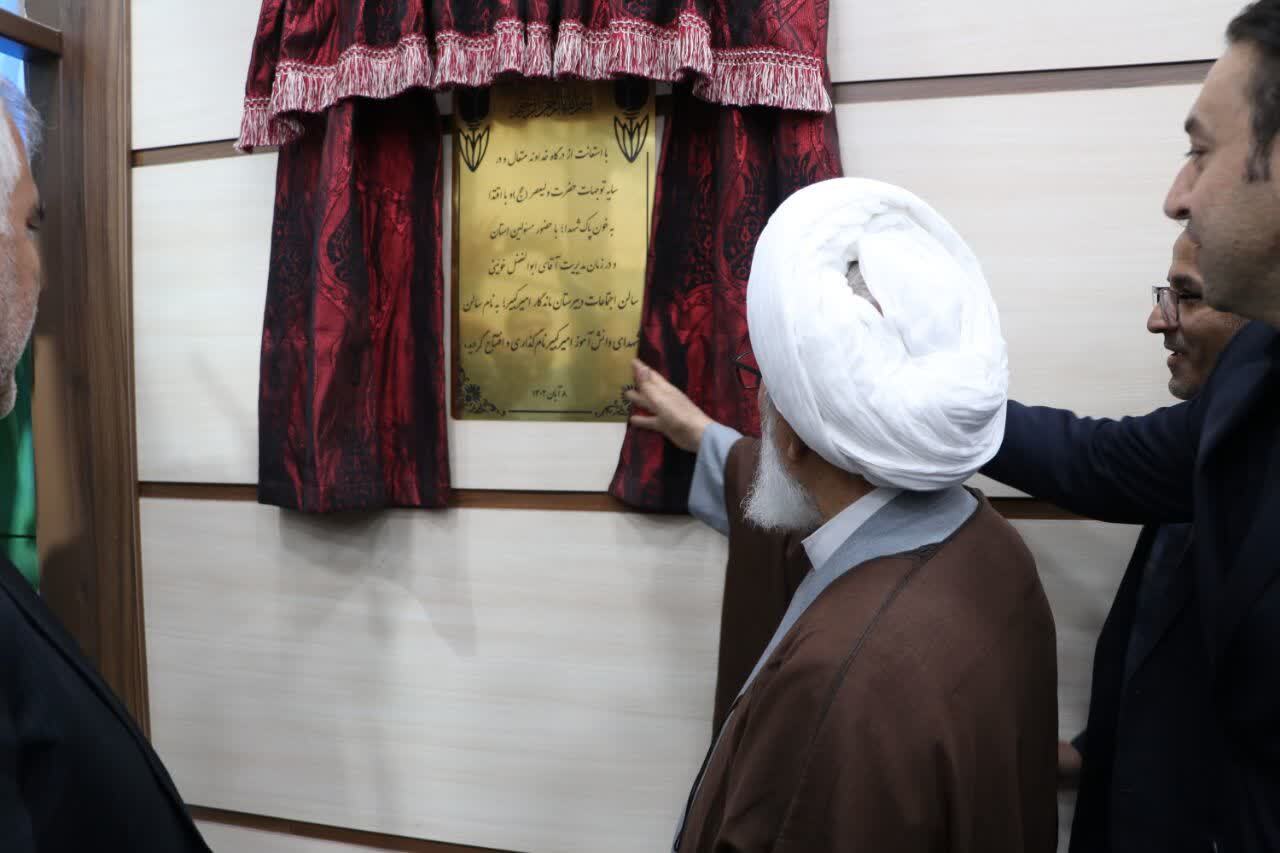 بسم الله الرحمن الرحیم
با استعانت از درگاه خداوند متعال و در
سایه توجهات حضرت ولیعصر (عج) و با اقتدا
به خون پاک شهدا؛ با حضور مسئولین استان
و در زمان مدیریت آقای ابوالفضل خوئینی
سالن اجتماعات دبیرستان ماندگار امیرکبیر؛ به نام سالن
شهدای دانش آموز امیرکبیر نام گذاری و افتتاح گردید.
۸ آبان ۱۴۰۲